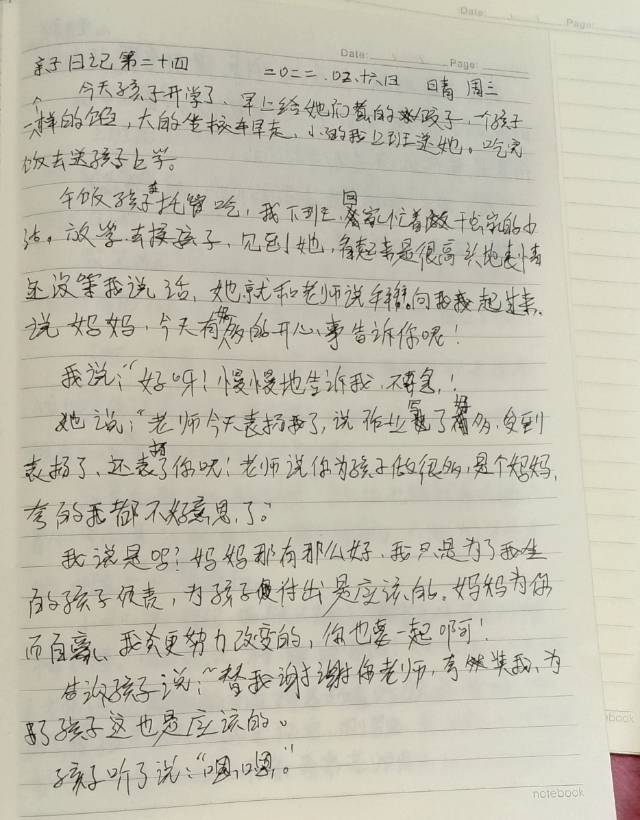 Date: Page:
Date: Page:
亲子日记第二十四 二0二二.02.十六日 晴 周三
今天孩子开学了，早上给她们煮的饺子，一个孩子
一样的饭，大的坐校车早走，小的我上班送她。吃完
饭去送孩子上学。
午饭孩子在托管吃，我下班回家忙着做干点家的小
活。放学去接孩子，见到她，看起来是很高兴地表情
还没等我说话，她就和老师说再见向我我起过来.
说妈妈，今天有好多的开心事告诉你呢！
我说；“好呀！慢慢地告诉我，不要急，！
她说；“老师今天表扬我了，说作业写了好多，受到
表扬了、还表扬了你呢！老师说你为孩子做很多，是个妈妈，
夸的我都不好意思了。
我说是吗？妈妈那有那么好，我只是为了我生
的孩子负责，为孩子付出是应该的。妈妈为你
而自豪、我会更努力改变的，你也要一起啊！
告诉孩子说；“替我谢谢你老师，夸奖我，为
了孩子这也是应该的。
孩子听了说：“嗯，嗯。”
notebook
book